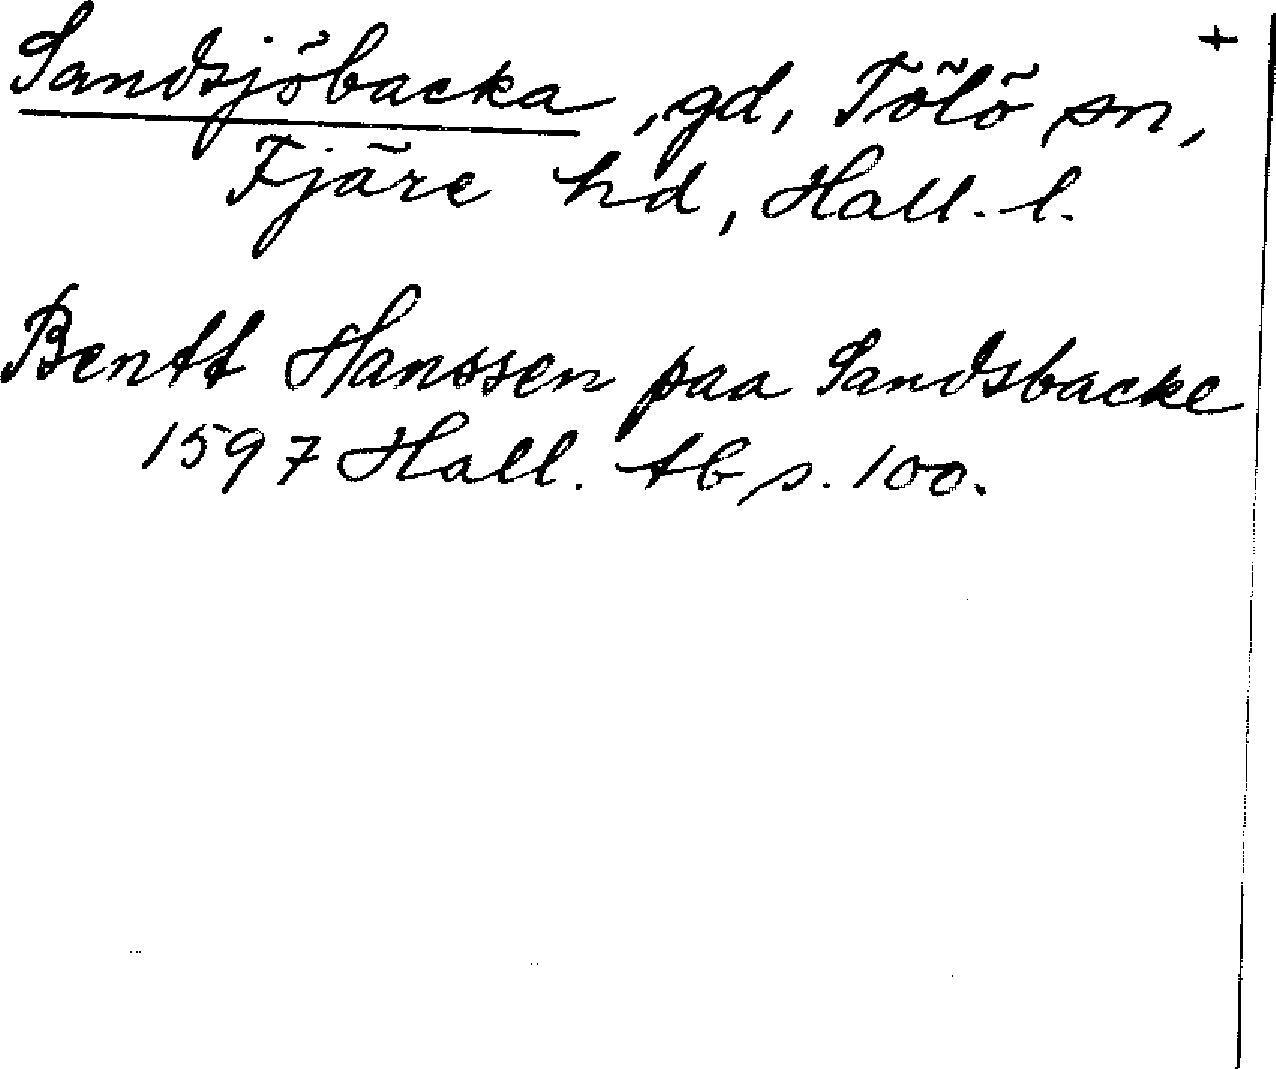 Sandsjöbacka, gd, Tölö sn, +
Fjäre hd, Hall. l.
Bentt Hanssen paa Sandsbacke
1597 Hall. tb s. 100.